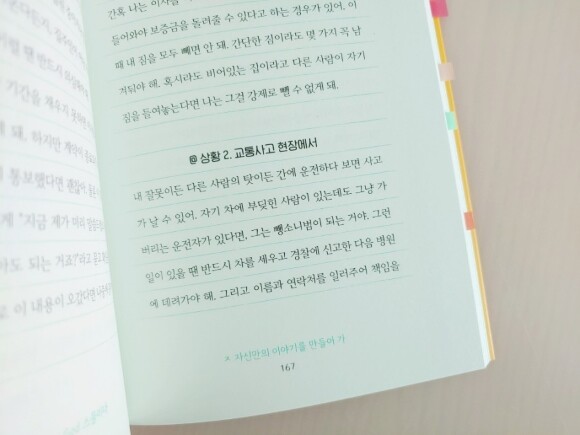 기간을 채우지 못하면
돼. 하지만 계약이
통보했다면 괜찮아
"지금 제가 미리
되는 거죠?"라고
이 내용이 오갔다면
간혹 나는 이사를
들어와야 보증금을 돌려줄 수 있다고 하는 경우가 있어. 이
때 내 짐을 모두 빼면 안 돼. 간단한 짐이라도 몇 가지 꼭 남
겨둬야 해. 혹시라도 비어있는 집이라고 다른 사람이 자기
짐을 들여놓는다면 나는 그걸 강제로 뺄 수 없게 돼.
@ 상황 2. 교통사고 현장에서
내 잘못이든 다른 사람의 탓이든 간에 운전하다 보면 사고
가 날 수 있어. 자기 차에 부딪힌 사람이 있는데도 그냥 가
버리는 운전자가 있다면, 그는 뺑소니범이 되는 거야. 그런
일이 있을 땐 반드시 차를 세우고 경찰에 신고한 다음 병원
에 데려가야 해. 그리고 이름과 연락처를 일러주어 책임을
× 자신만의 이야기를 만들어 가
167